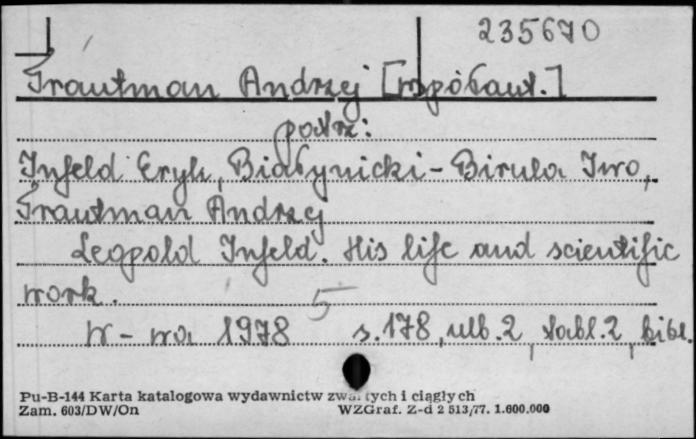 235670
Trautman Andrzej [współaut.]
patrz:
Infeld Eryk, Białynicki-Birula Iwo,
Trautman Andrzej
Leopold Infeld. His life and scientific
work.
5
W-wa 1978 s.178, nlb.2, tabl.2, bibl.
Pu-B-144 Karta katalogowa wydawnictw zwartych i ciągłych
Zam. 603/DW/On WZGraf. Z-d 2 513/77. 1.600.000